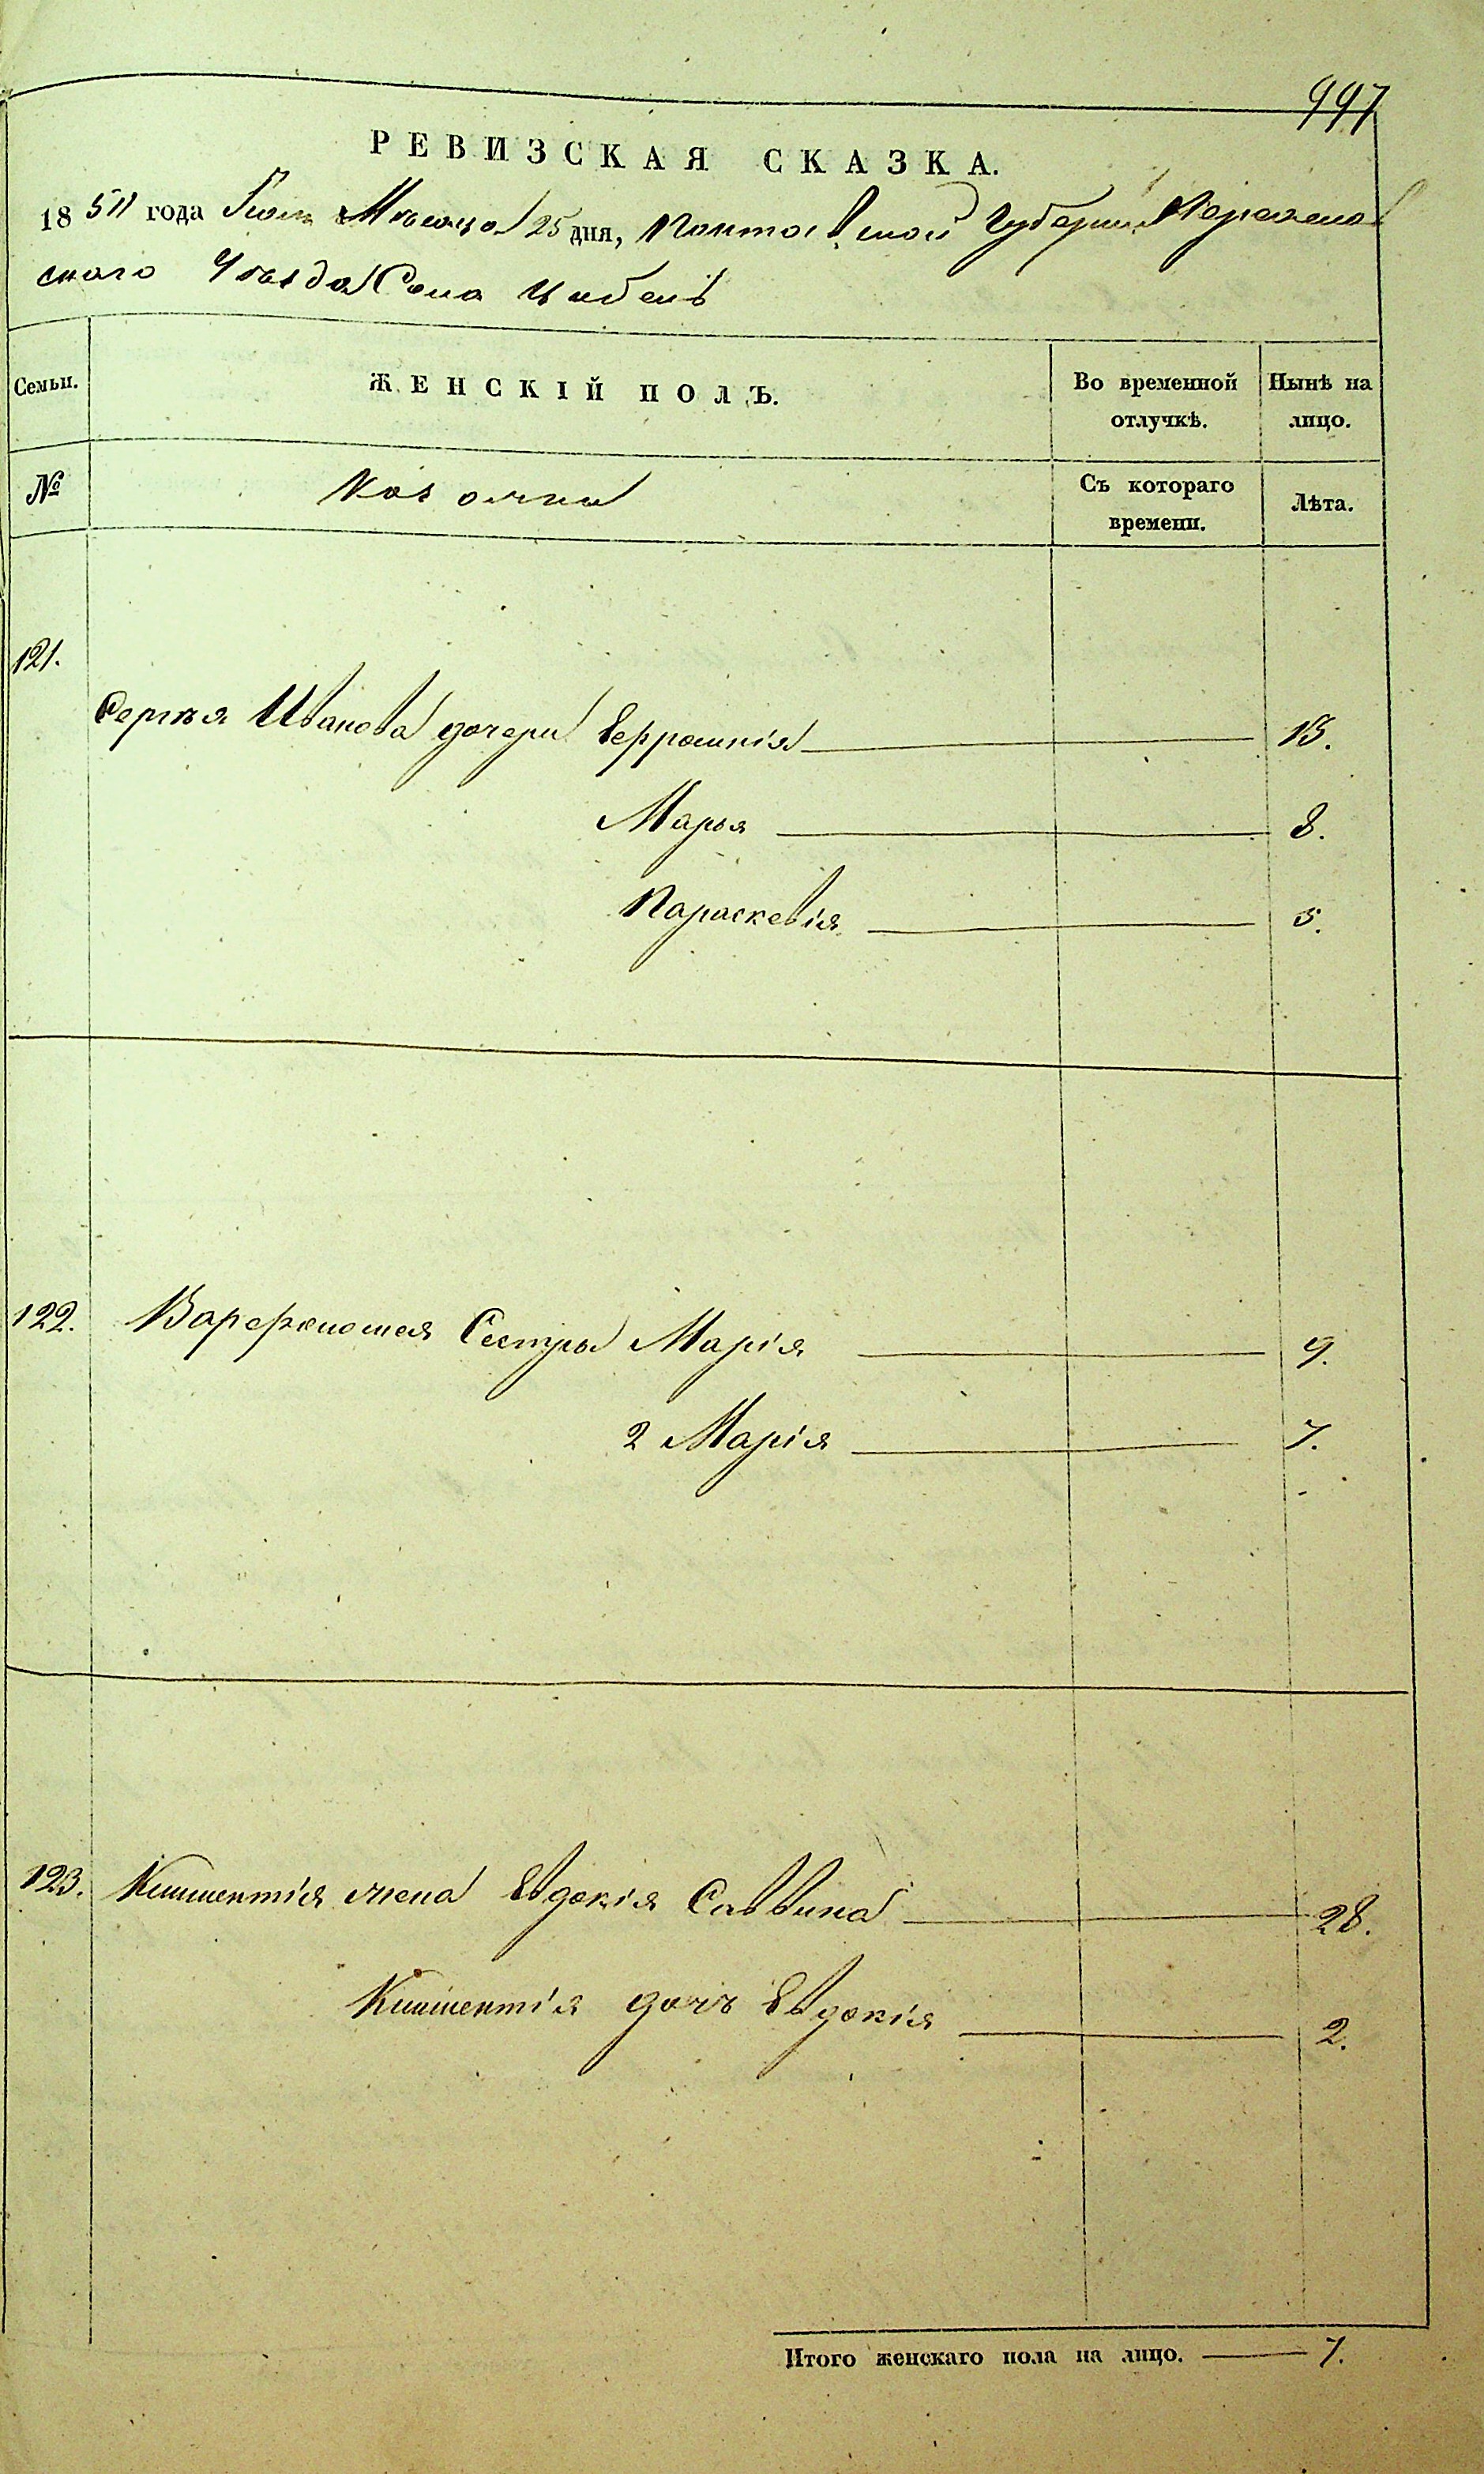 997
РЕВИЗСКАЯ СКАЗКА.
18 года Мѣсяца 25 дня, Полтавской Губерніи
скаго Уѣзда Села
Семьи. ЖЕНСКІЙ ПОЛЪ. Во временной отлучкѣ. Нынѣ на лицо.
№ Козачки Съ котораго времени. Лѣта.
121.
Сергѣя Иванова дочери Евфросинія 13.
Марья 8.
Параскевія 5.
122. Сестры Марія 9.
2 Марія 7.
123. жена Евдокія Саввина 28.
дочь Евдокія 2.
Итого женскаго пола на лицо. 7.